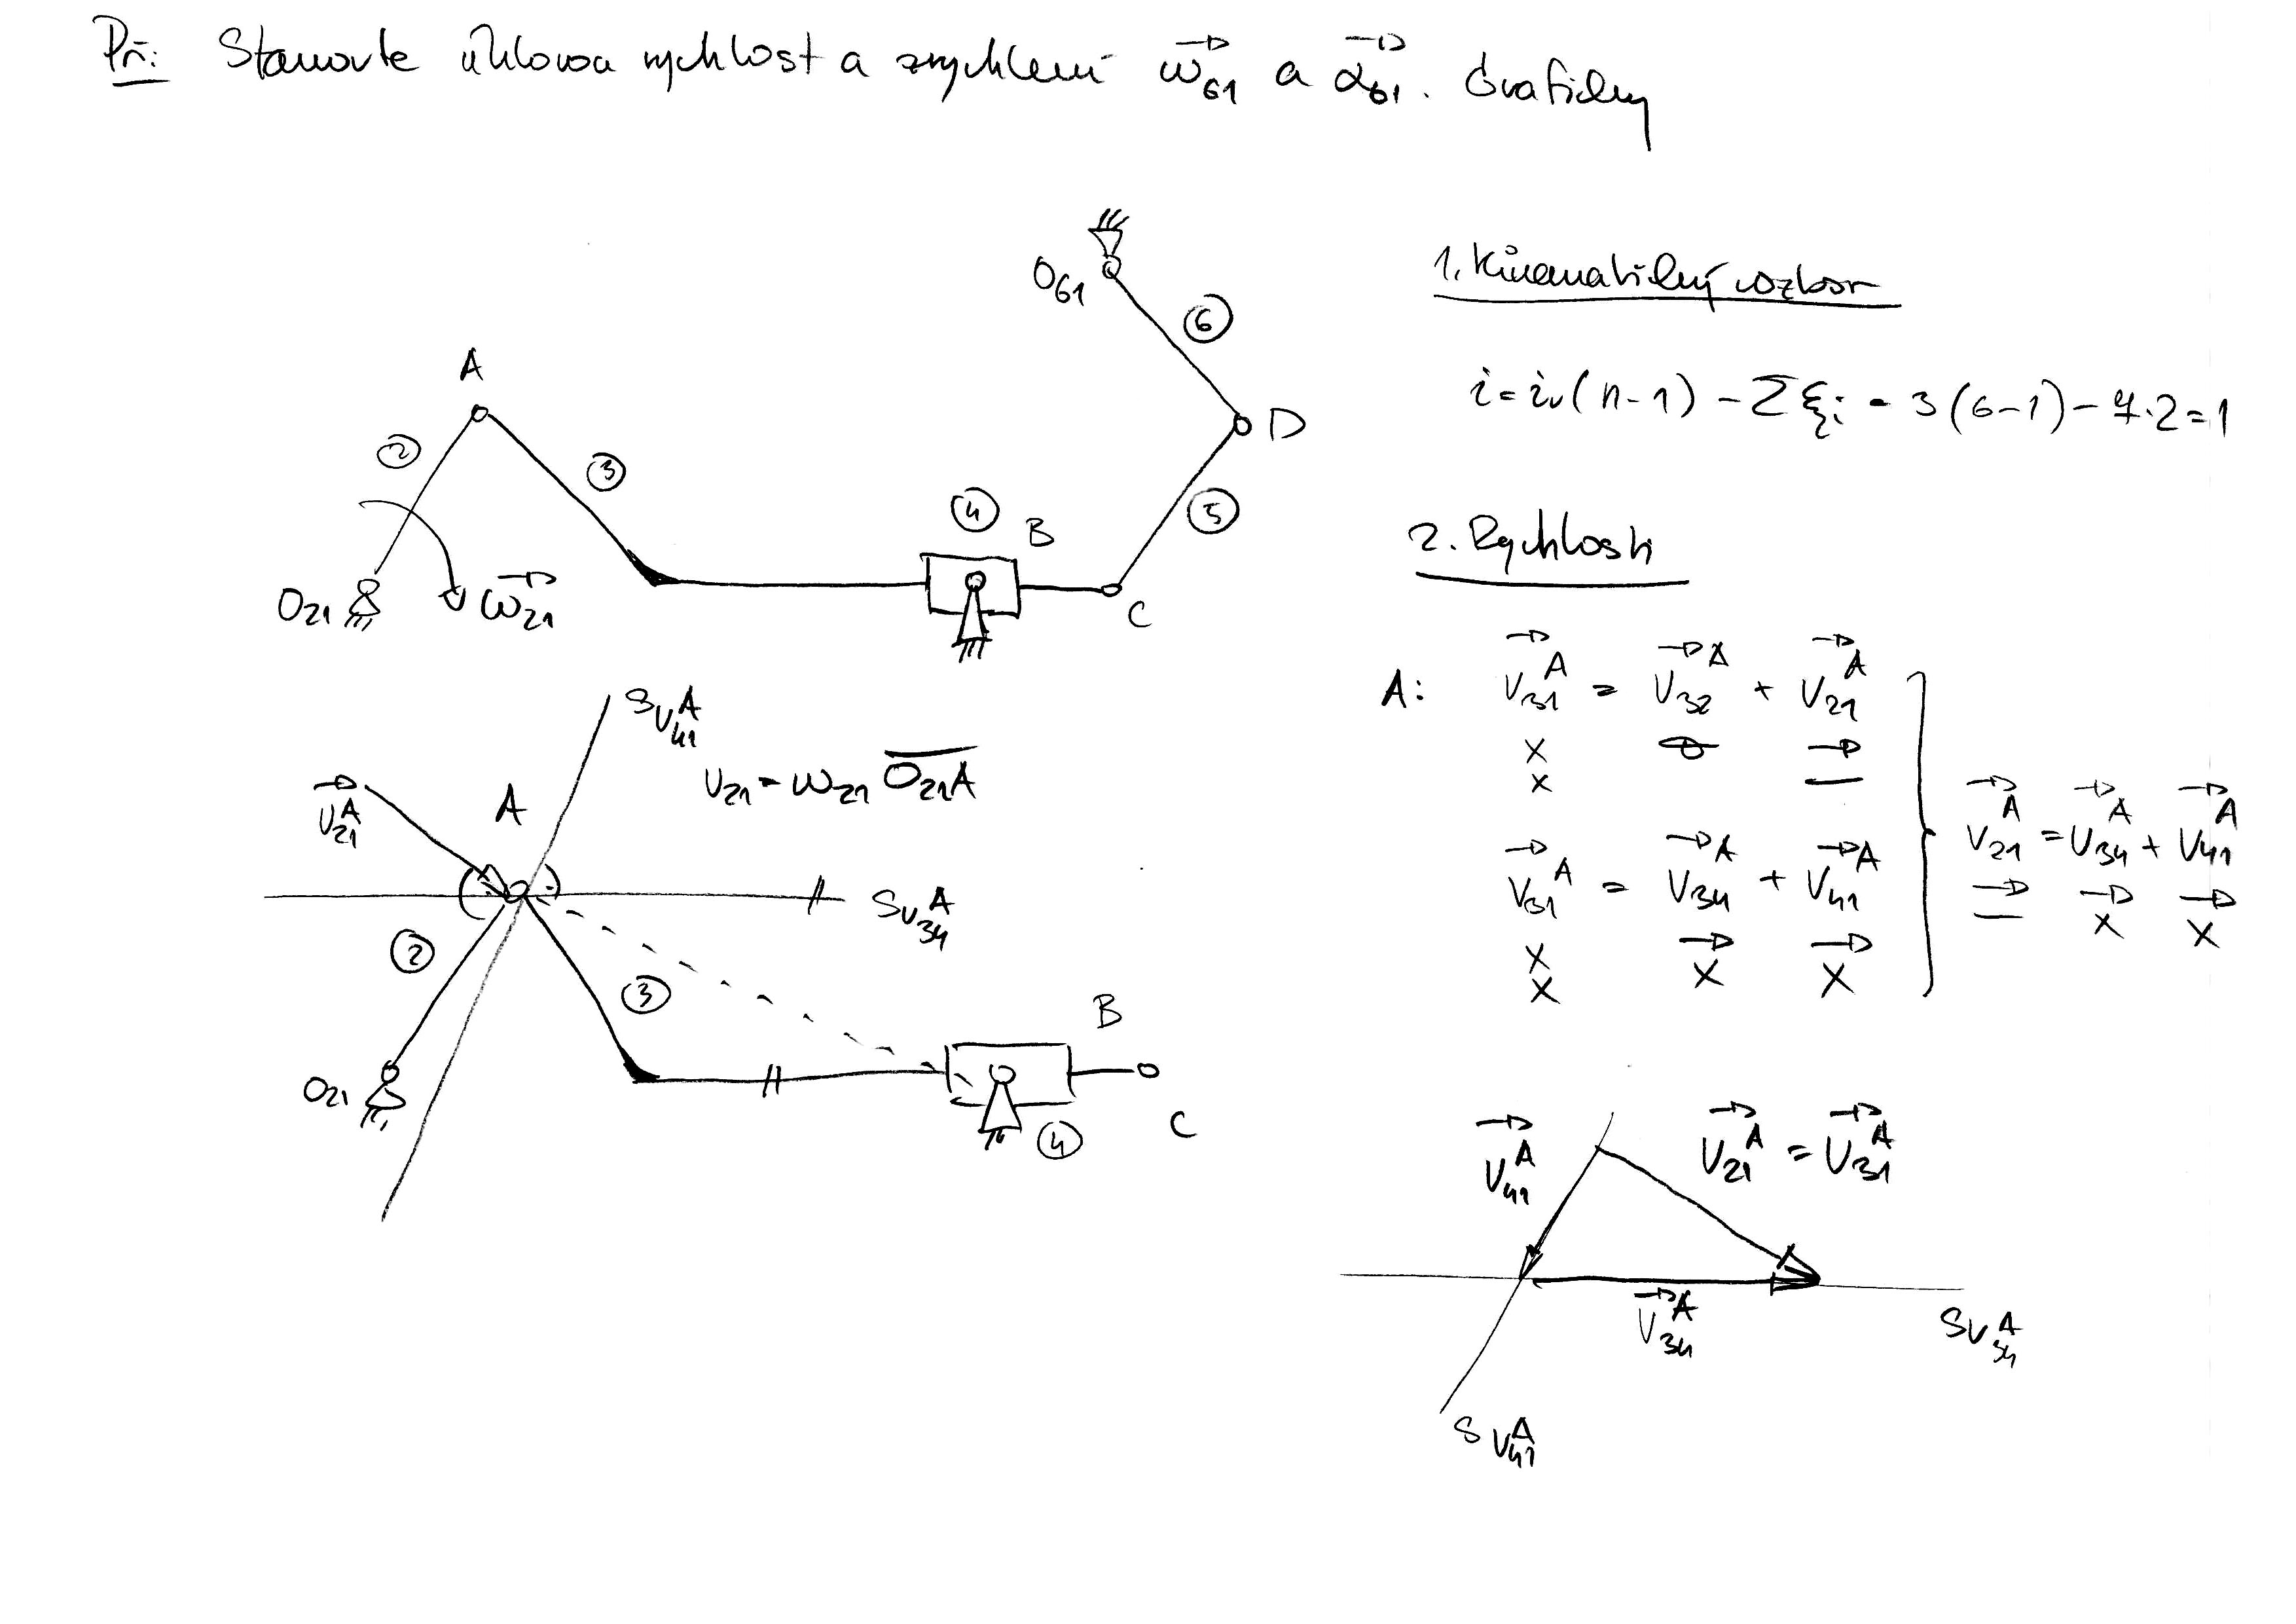 Př: Stanovte úhlovou rychlost a zrychlení ω⃗₆₁ a α⃗₆₁. Graficky
O₆₁
⑥
1. Kinematický rozbor
A
②
③
i = iᵥ(n-1) - Σξᵢ = 3(6-1) - 7·2 = 1
D
④
B
⑤
O₂₁
ω⃗₂₁
C
2. Rychlosti
A: v⃗₃₁ᴬ = v⃗₃₂ᴬ + v⃗₂₁ᴬ
x
x
v⃗₂₁ᴬ = v⃗₃₄ᴬ + v⃗₄₁ᴬ
x x
v⃗₃₁ᴬ = v⃗₃₄ᴬ + v⃗₄₁ᴬ
x x x
x
Sv₄₁ᴬ
v₂₁ = ω₂₁ O₂₁A
v⃗₂₁ᴬ
A
Sv₃₄ᴬ
②
③
B
O₂₁
④
C
v⃗₄₁ᴬ
v⃗₂₁ᴬ = v⃗₃₁ᴬ
v⃗₃₄ᴬ
Sv₃₄ᴬ
Sv₄₁ᴬ